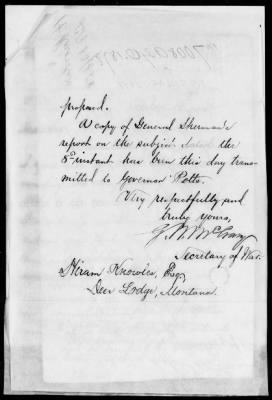 proposed.
A copy of General Sherman's
report on the subject dated the
5th instant has been this day trans-
mitted to Governor Potts.
Very respectfully and
truly yours,
G. W. McCrary
Secretary of War.
Hiram Knowles, Esq.
Deer Lodge, Montana.